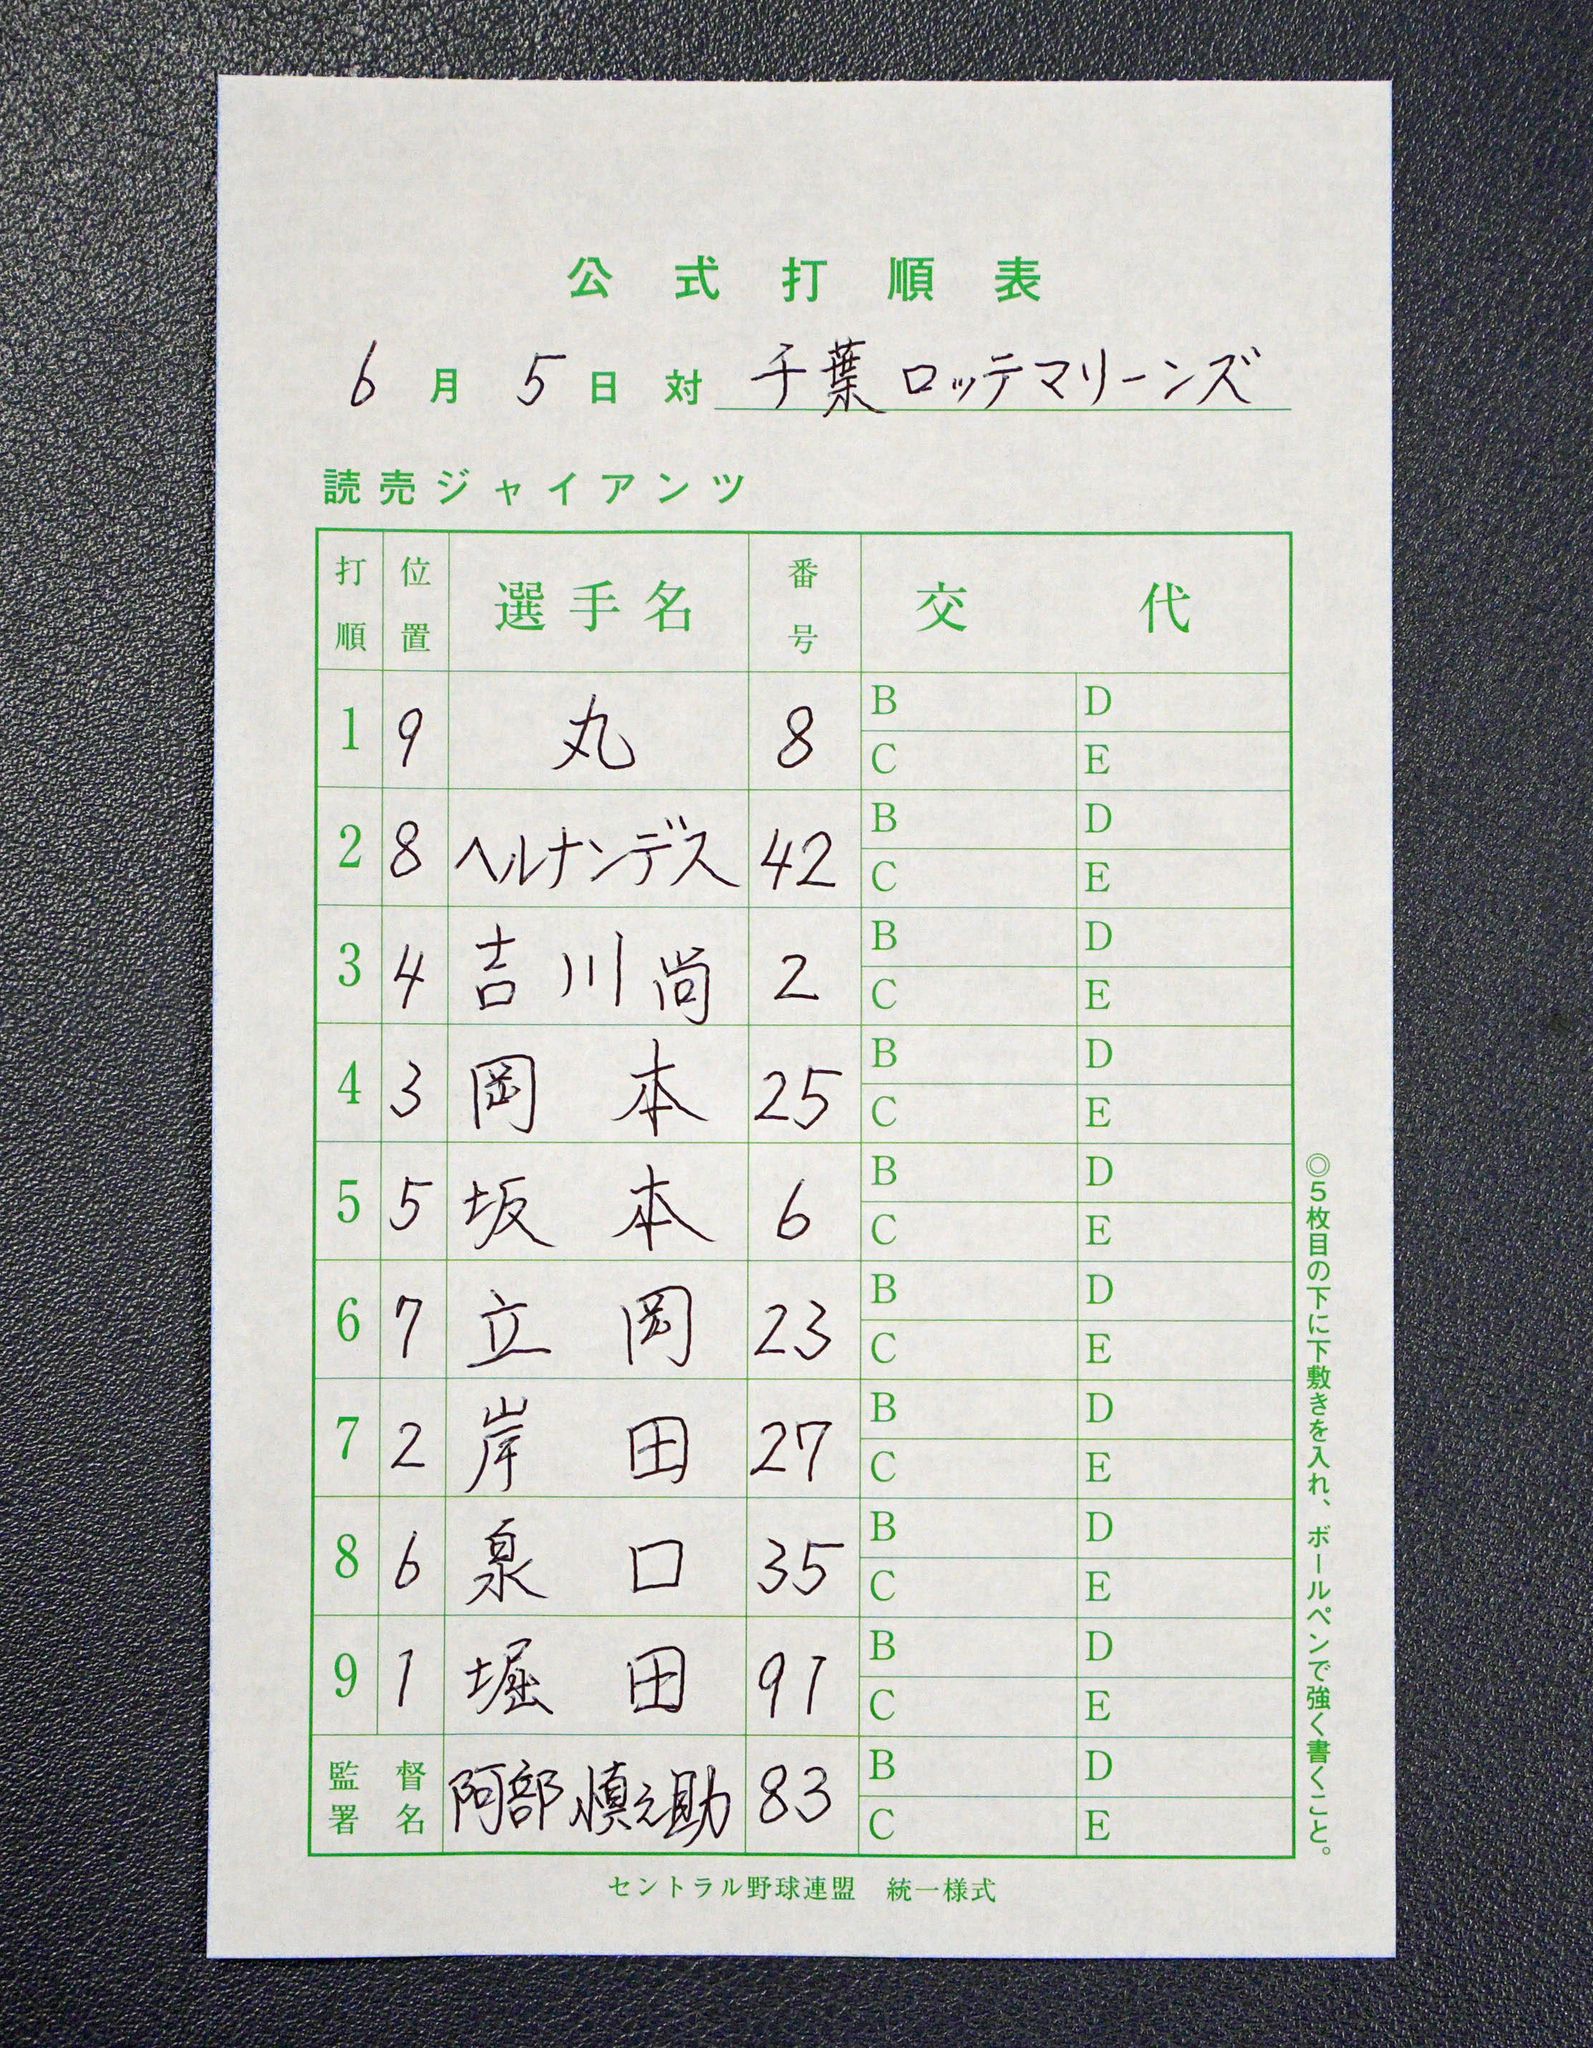 公式打順表
6月5日対 千葉ロッテマリーンズ
読売ジャイアンツ
打順 位置 選手名 番号 交代
1 9 丸 8 B D
C E
2 8 ヘルナンデス 42 B D
C E
3 4 吉川尚 2 B D
C E
4 3 岡本 25 B D
C E
5 5 坂本 6 B D
C E
6 7 立岡 23 B D
C E
7 2 岸田 27 B D
C E
8 6 泉口 35 B D
C E
9 1 堀田 91 B D
C E
監督署名 阿部慎之助 83 B D
C E
◎5枚目の下に下敷きを入れ、ボールペンで強く書くこと。
セントラル野球連盟 統一様式